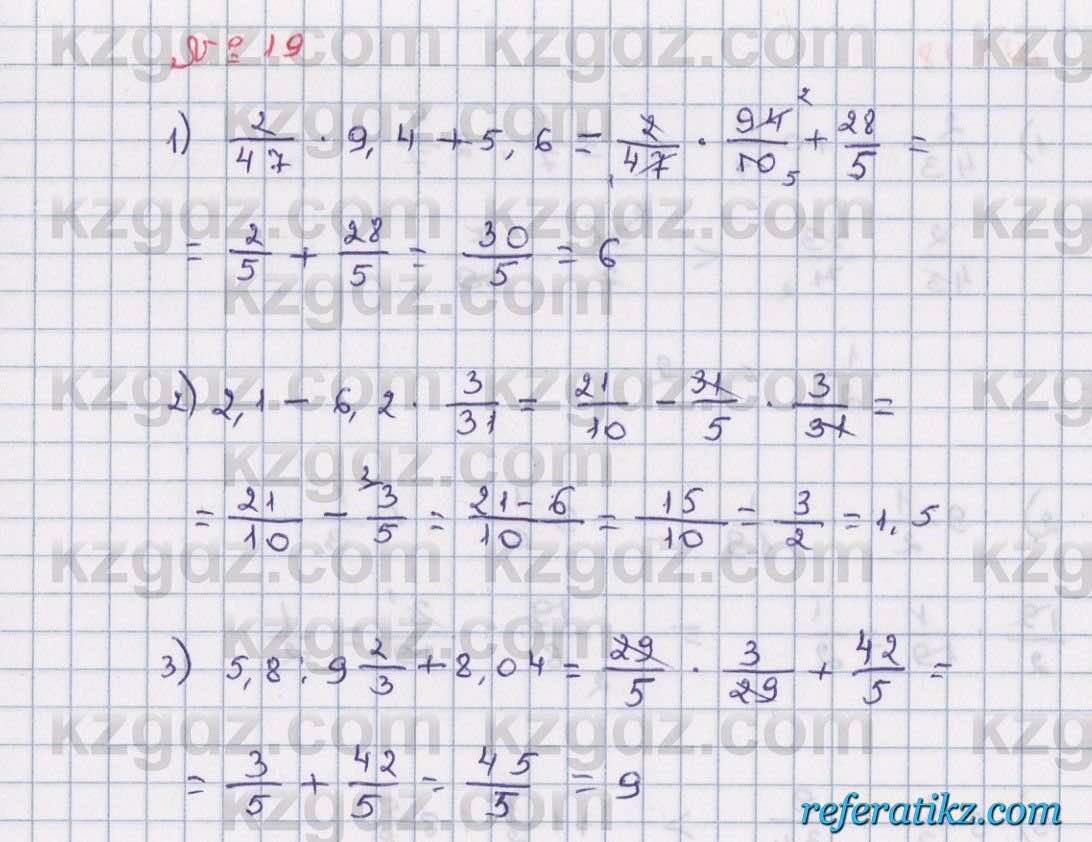 № 19
1) 2/47 · 9,4 + 5,6 = 2/47 · 94/10 + 28/5 =
= 2/5 + 28/5 = 30/5 = 6
2) 2,1 - 6,2 · 3/31 = 21/10 - 31/5 · 3/31 =
= 21/10 - 3/5 = 21-6/10 = 15/10 = 3/2 = 1,5
3) 5,8 : 9 2/3 + 8,04 = 29/5 · 3/29 + 42/5 =
= 3/5 + 42/5 = 45/5 = 9
referatikz.com
kzgdz.com